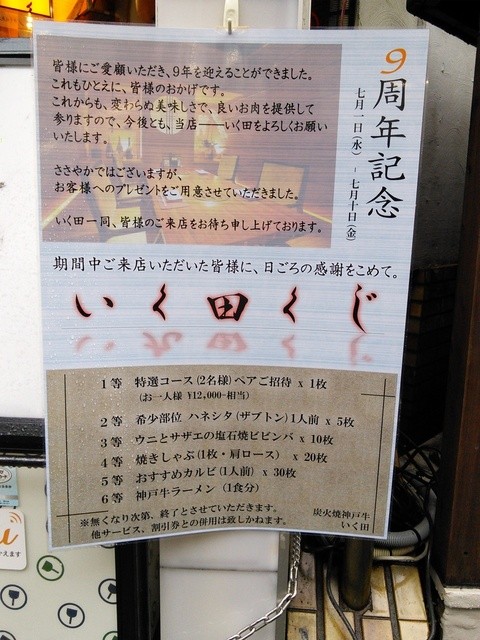 9周年記念
七月一日(水) - 七月十日(金)
皆様にご愛顧いただき、9年を迎えることができました。
これもひとえに、皆様のおかげです。
これからも、変わらぬ美味しさで、良いお肉を提供して
参りますので、今後とも、当店――いく田をよろしくお願い
いたします。
ささやかではございますが、
お客様へのプレゼントをご用意させていただきました。
いく田一同、皆様のご来店をお待ち申し上げております。
期間中ご来店いただいた皆様に、日ごろの感謝をこめて。
いく田くじ
1等 特選コース(2名様)ペアご招待 x 1枚
(お一人様 ¥12,000-相当)
2等 希少部位 ハネシタ(ザブトン)1人前 x 5枚
3等 ウニとサザエの塩石焼ビビンバ x 10枚
4等 焼きしゃぶ(1枚・肩ロース) x 20枚
5等 おすすめカルビ(1人前) x 30枚
6等 神戸牛ラーメン (1食分)
※無くなり次第、終了とさせていただきます。
他サービス、割引券との併用は致しかねます。
炭火焼神戸牛
いく田